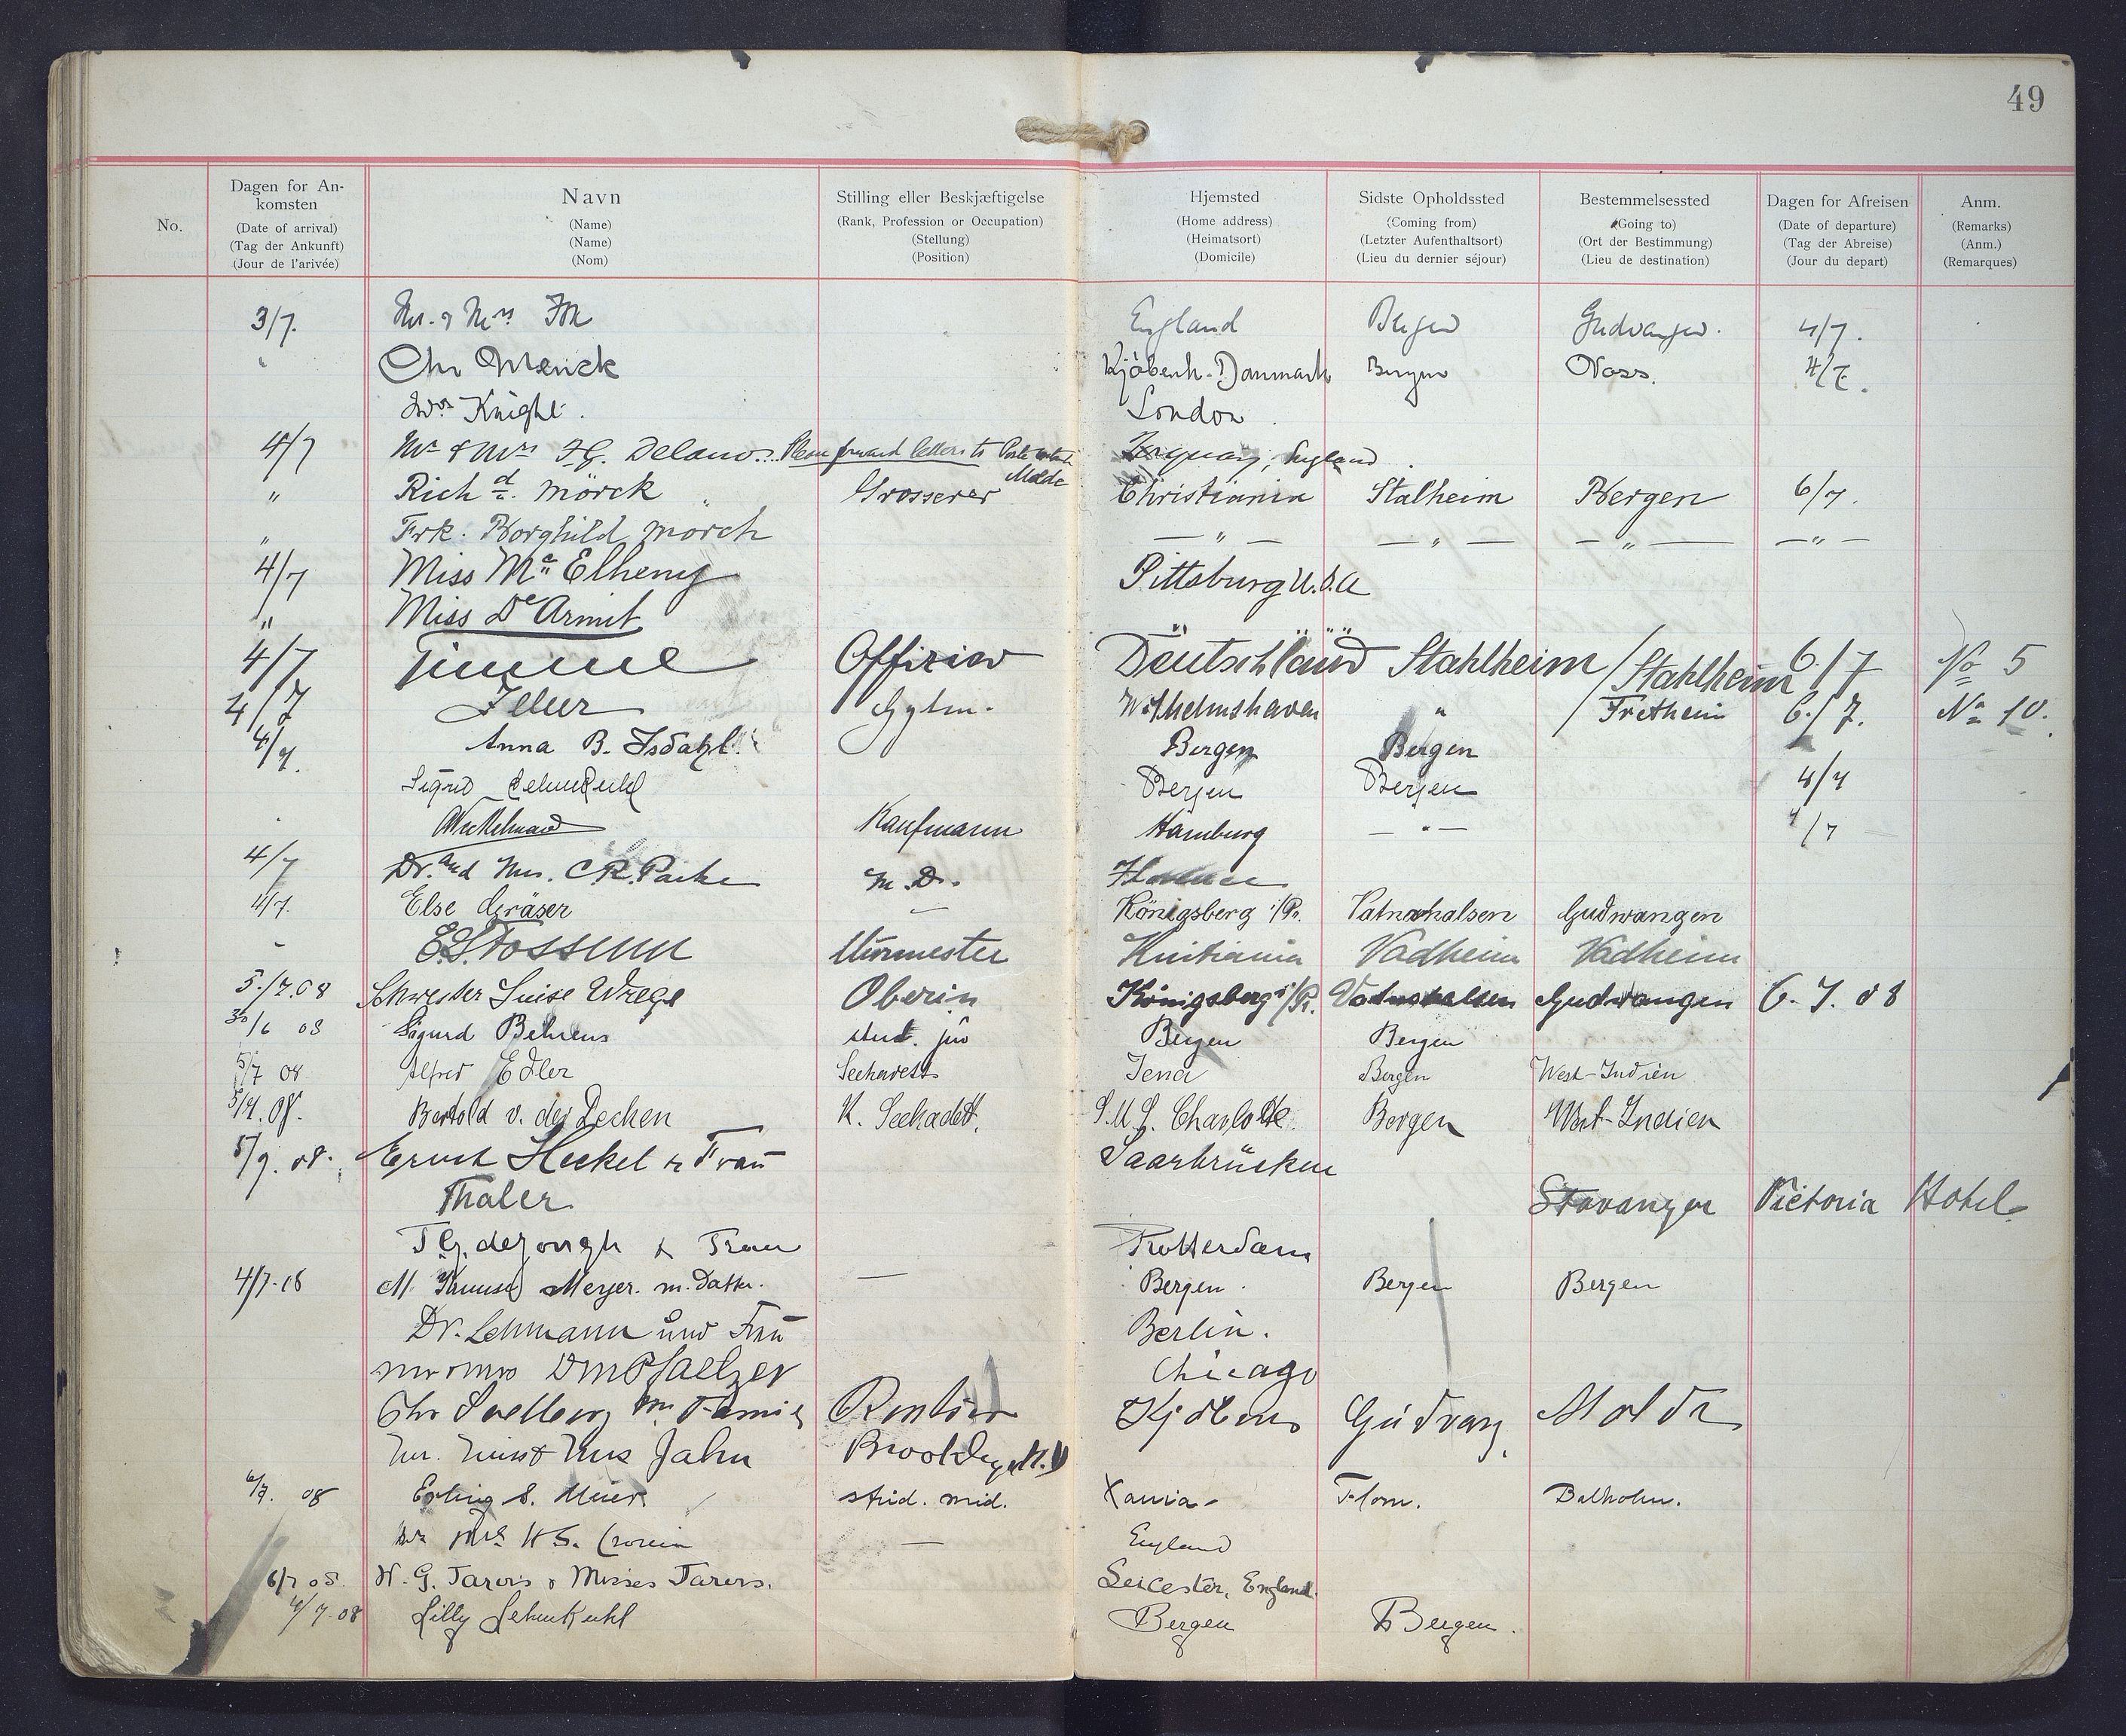 49
No.
Dagen for An-
komsten
(Date of arrival)
(Tag der Ankunft)
(Jour de l'arivée)
Navn
(Name)
(Name)
(Nom)
Stilling eller Beskjæftigelse
(Rank, Profession or Occupation)
(Stellung)
(Position)
Hjemsted
(Home address)
(Heimatsort)
(Domicile)
Sidste Opholdssted
(Coming from)
(Letzter Aufenthaltsort)
(Lieu du dernier séjour)
Bestemmelsessted
(Going to)
(Ort der Bestimmung)
(Lieu de destination)
Dagen for Afreisen
(Date of departure)
(Tag der Abreise)
(Jour du depart)
Anm.
(Remarks)
(Anm.)
(Remarques)
3/7. Mr. & Mrs England Bergen Gudvangen. 4/7.
" Chr Kjöbenh. Danmark Bergen Voss. 4/7.
Knight. London
4/7 Mr & Mrs F.G. Delano. Please forward letters to Poste restante Molde Torquay, England
" Richd. Mörck Grosserer Christiania Stalheim Bergen 6/7.
" Frk. Borghild Mörch — " — — " — — " — — " —
4/7 Miss Mc Elheny Pittsburg U.S.A
" Miss De Armit
4/7 Offizier Deutschland Stahlheim / Stahlheim 6./7 No 5
4/7 Wilhelmshaven " / Fretheim 6./7. No 10.
4/7. Anna B. Isdahl. Bergen Bergen
Sigrid Lehmkuhl Bergen Bergen 4/7
Kaufmann Hamburg — " — 4/7
4/7 Dr. and Mrs. C.R. Parke M.D. Florence
4/7. Else Gräser — Königsberg i/Pr. Vatnahalsen Gudwangen
" E. Stossum Murmester Kristiania Vadheim Vadheim
5./7.08 Schwester Luise Wrege Oberin Königsberg i/Pr. Vatnahalsen Gudwangen 6.7.08
30/6 08 Sigurd Behrens stud. jur Bergen Bergen
5/7 08 Alfred Edler Seekadett Jena Bergen West-Indien
5/7.08. Bertold v. der Decken K. Seekadett. S.M.S. Charlotte Bergen West-Indien
5/7.08. Ernst Heckel & Frau Saarbrücken
Thaler Stavanger Victoria Hotel.
T.G. de Jongh & Frau Rotterdam
4/7-08 M. Meyer. m. Datter. — Bergen. Bergen Bergen
Dr. Lehmann und Frau Berlin.
Mr & Mrs D M Pfaelzer Chicago
Chr Familie Rentier Kjöbenh Gudvang. Molde
Mr. Jahn Brooklyn N.Y
6/7. 08 Erling S. Meier stud. med. Xania- Flom. Balholm.
Mr Mrs H S. — England
6/7 08. H. G. & Misses Leicester, England.
4/7.08 Lilly Lehmkuhl Bergen Bergen.